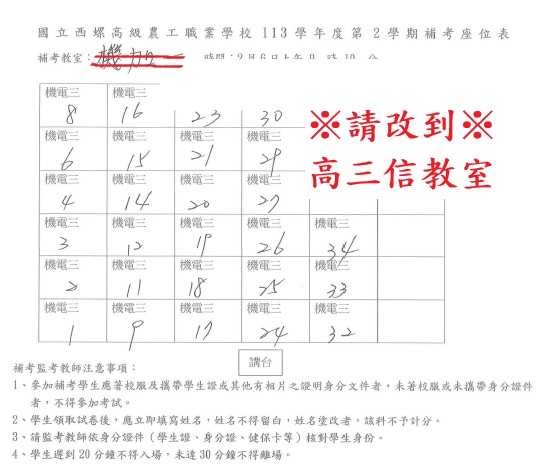 國立西螺高級農工職業學校 113 學年度第 2 學期補考座位表
補考教室：機加一
※請改到※
高三信教室
機電三 機電三
8 16 23 30
機電三 機電三 機電三 機電三
6 15 21 29
機電三 機電三 機電三 機電三
4 14 20 27
機電三 機電三 機電三 機電三 機電三
3 12 19 26 34
機電三 機電三 機電三 機電三 機電三
2 11 18 25 33
機電三 機電三 機電三 機電三 機電三
1 9 17 24 32
講台
補考監考教師注意事項：
1、參加補考學生應著校服及攜帶學生證或其他有相片之證明身分文件者，未著校服或未攜帶身分證件
者，不得參加考試。
2、學生領取試卷後，應立即填寫姓名，姓名不得留白，姓名塗改者，該科不予計分。
3、請監考教師依身分證件（學生證、身分證、健保卡等）核對學生身份。
4、學生遲到 20 分鐘不得入場，未達 30 分鐘不得離場。